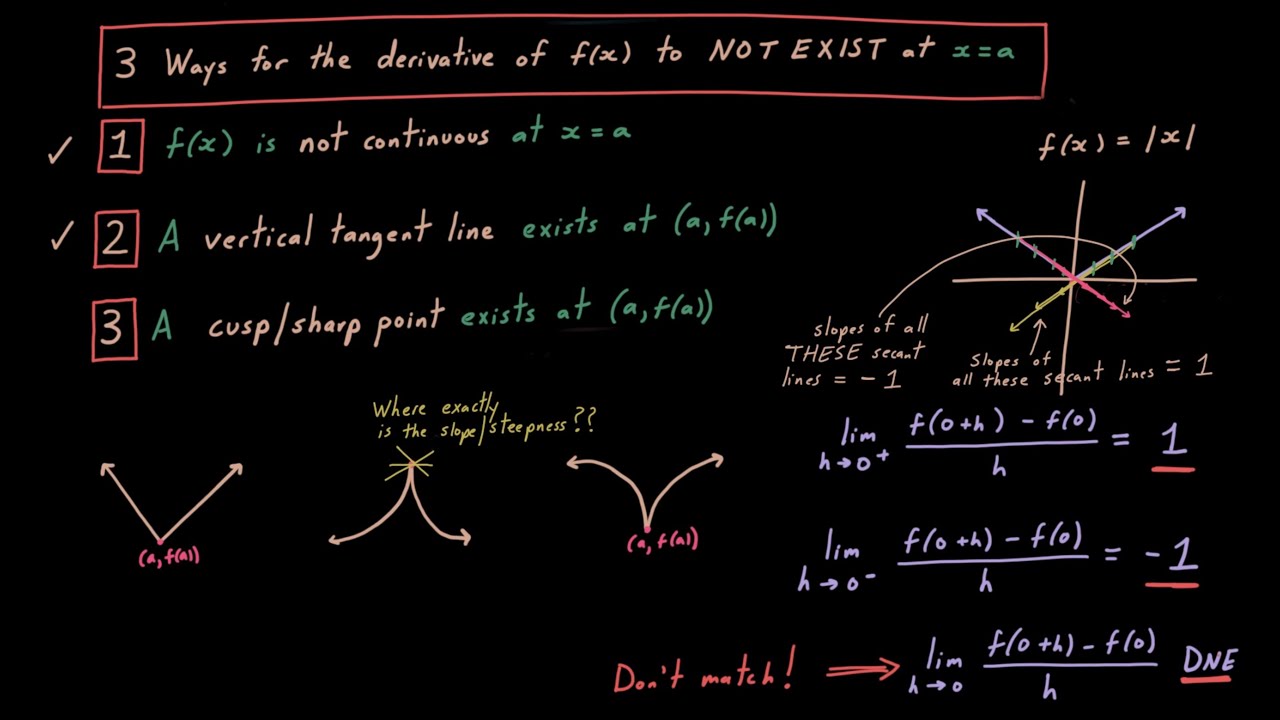 3 Ways for the derivative of f(x) to NOT EXIST at x=a
✓ 1 f(x) is not continuous at x=a
✓ 2 A vertical tangent line exists at (a, f(a))
3 A cusp/sharp point exists at (a, f(a))
Where exactly
is the slope/steepness??
(a, f(a))
(a, f(a))
f(x) = |x|
slopes of all
THESE secant
lines = -1
Slopes of
all these secant lines = 1
lim h→0⁺ (f(0+h) - f(0))/h = 1
lim h→0⁻ (f(0+h) - f(0))/h = -1
Don't match! ⟹ lim h→0 (f(0+h) - f(0))/h DNE